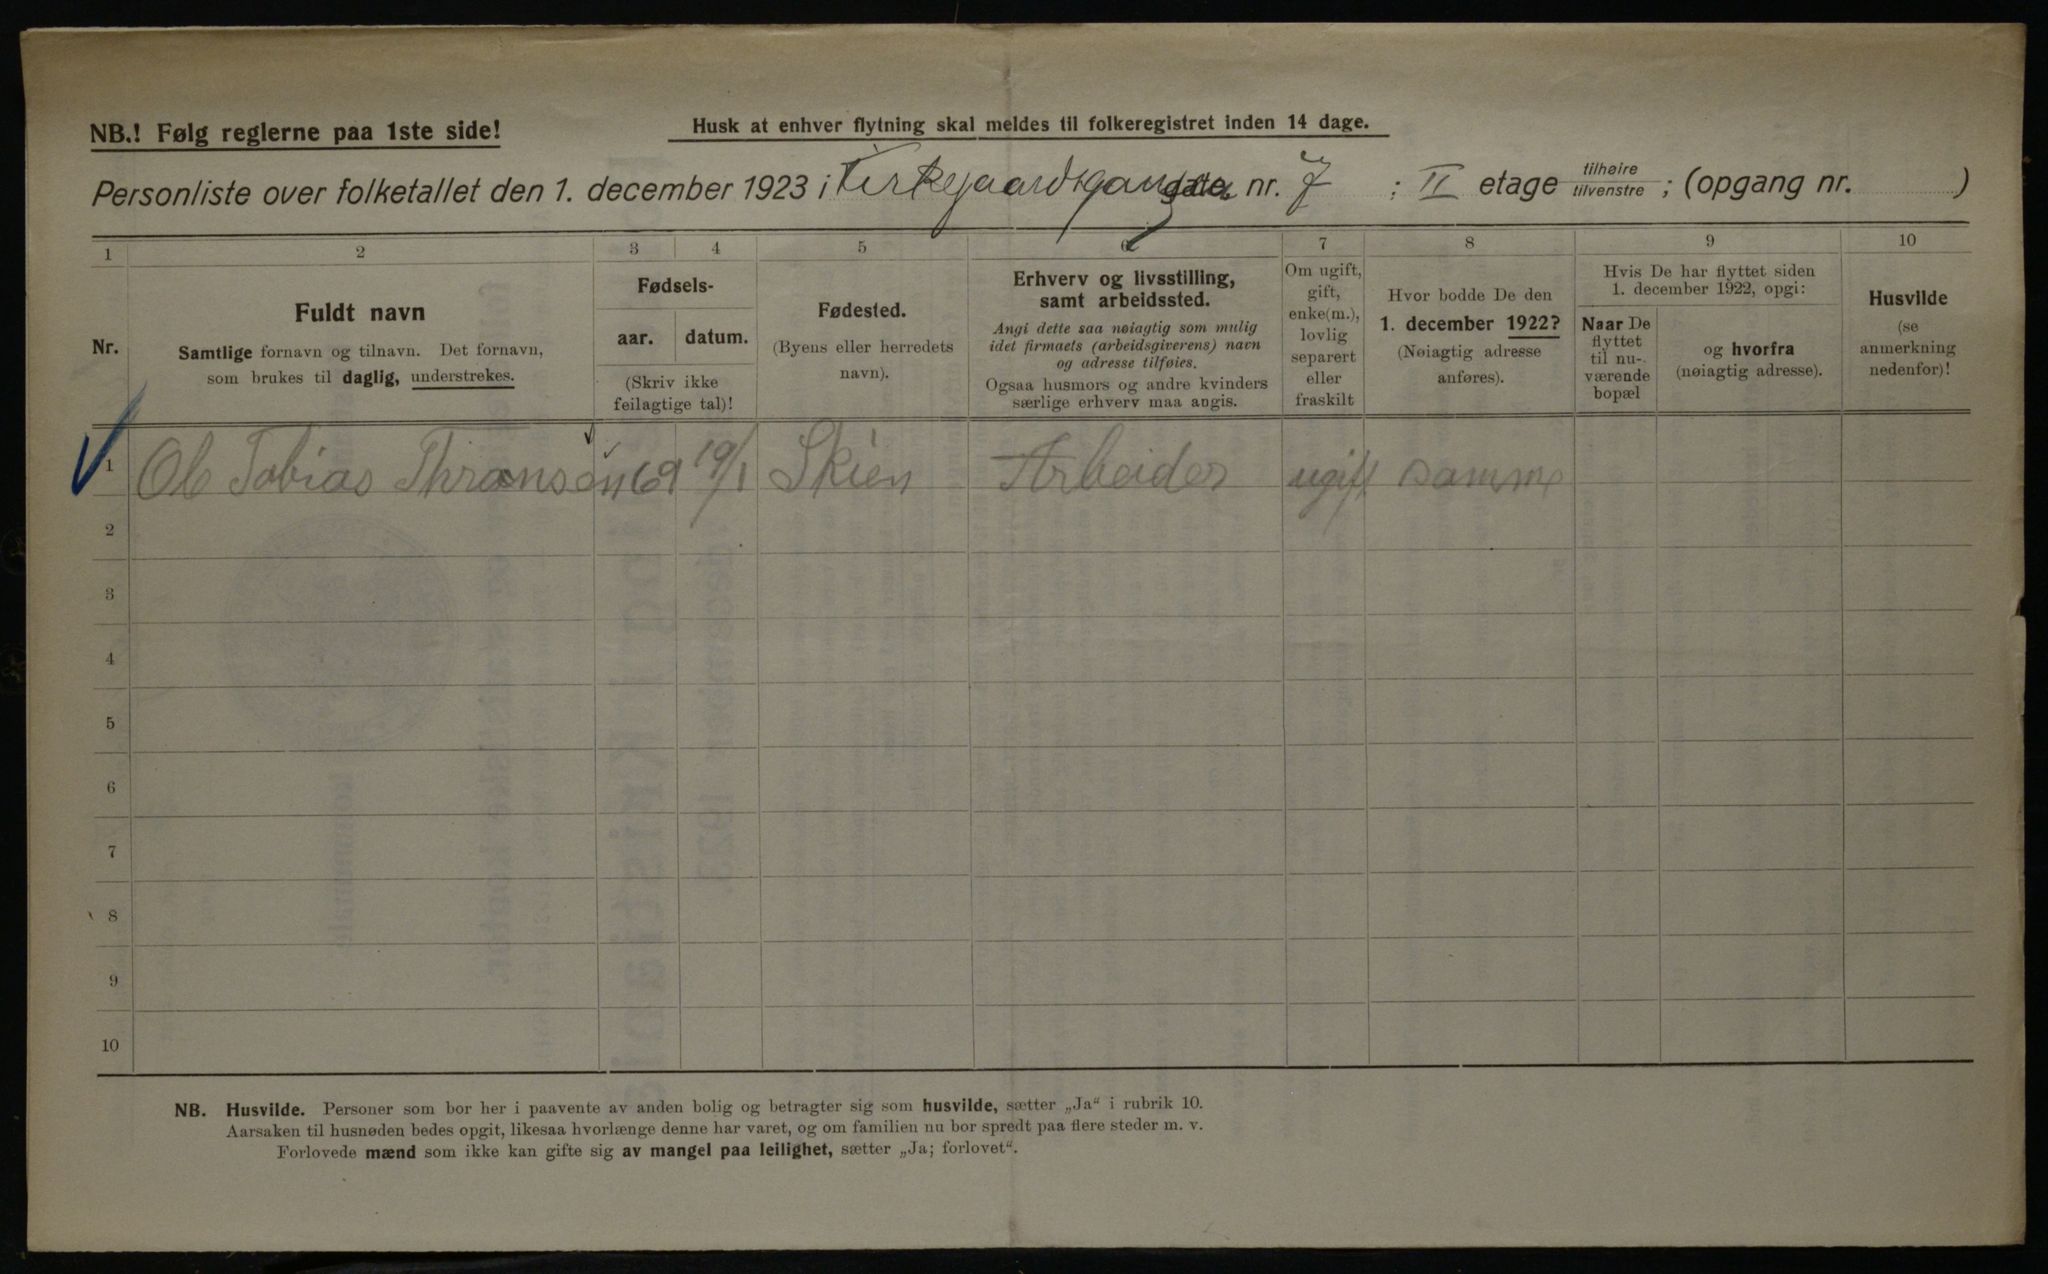 NB.! Følg reglerne paa 1ste side!
Husk at enhver flytning skal meldes til folkeregistret inden 14 dage.
Personliste over folketallet den 1. december 1923 i Kirkegaardsgangen gate nr. 7 ; II etage tilhøire tilvenstre ; (opgang nr. )
1 2 3 4 5 6 7 8 9 10
Nr.
Fuldt navn
Samtlige fornavn og tilnavn. Det fornavn,
som brukes til daglig, understrekes.
Fødsels-
aar. datum.
(Skriv ikke
feilagtige tal)!
Fødested.
(Byens eller herredets
navn).
Erhverv og livsstilling,
samt arbeidssted.
Angi dette saa nøiagtig som mulig
idet firmaets (arbeidsgiverens) navn
og adresse tilføies.
Ogsaa husmors og andre kvinders
særlige erhverv maa angis.
Om ugift,
gift,
enke(m.),
lovlig
separert
eller
fraskilt
Hvor bodde De den
1. december 1922?
(Nøiagtig adresse
anføres).
Hvis De har flyttet siden
1. december 1922, opgi:
Naar De
flyttet
til nu-
værende
bopæl
og hvorfra
(nøiagtig adresse).
Husvilde
(se
anmerkning
nedenfor)!
1 Ole Tobias Thransen 69 19/1 Skien Arbeider ugift samme
2
3
4
5
6
7
8
9
10
NB. Husvilde. Personer som bor her i paavente av anden bolig og betragter sig som husvilde, sætter „Ja“ i rubrik 10.
Aarsaken til husnøden bedes opgit, likesaa hvorlænge denne har varet, og om familien nu bor spredt paa flere steder m. v.
Forlovede mænd som ikke kan gifte sig av mangel paa leilighet, sætter „Ja; forlovet“.